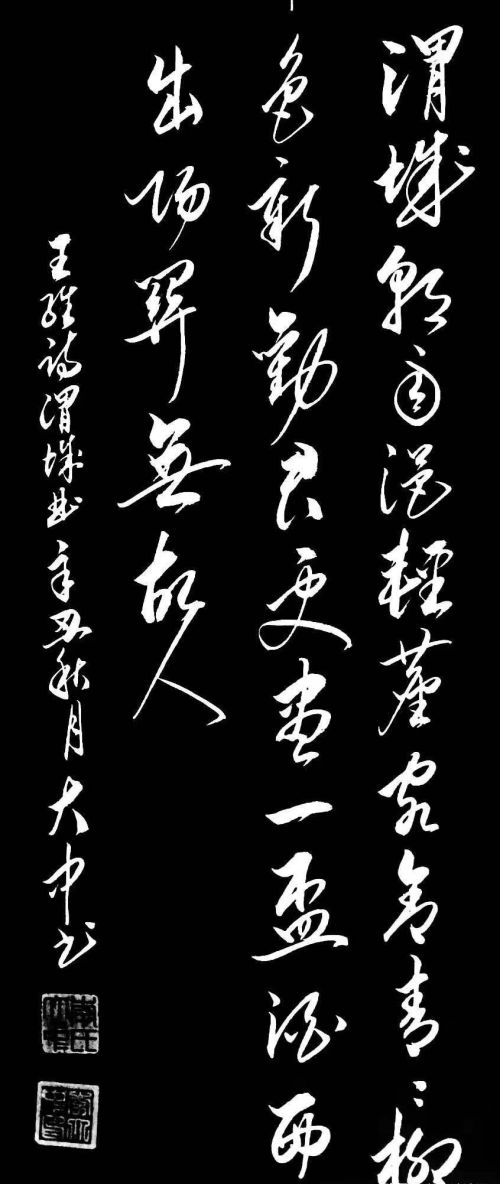 渭城朝雨浥輕塵客舍青〻柳
色新勸君更盡一盃酒西
出陽關無故人
王維詩渭城曲辛丑秋月大中书